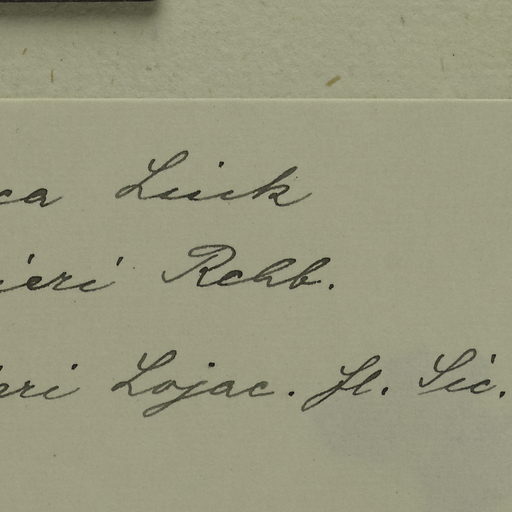 ca Linck
ieri Rchb.
eri Lojac. fl. Sic.